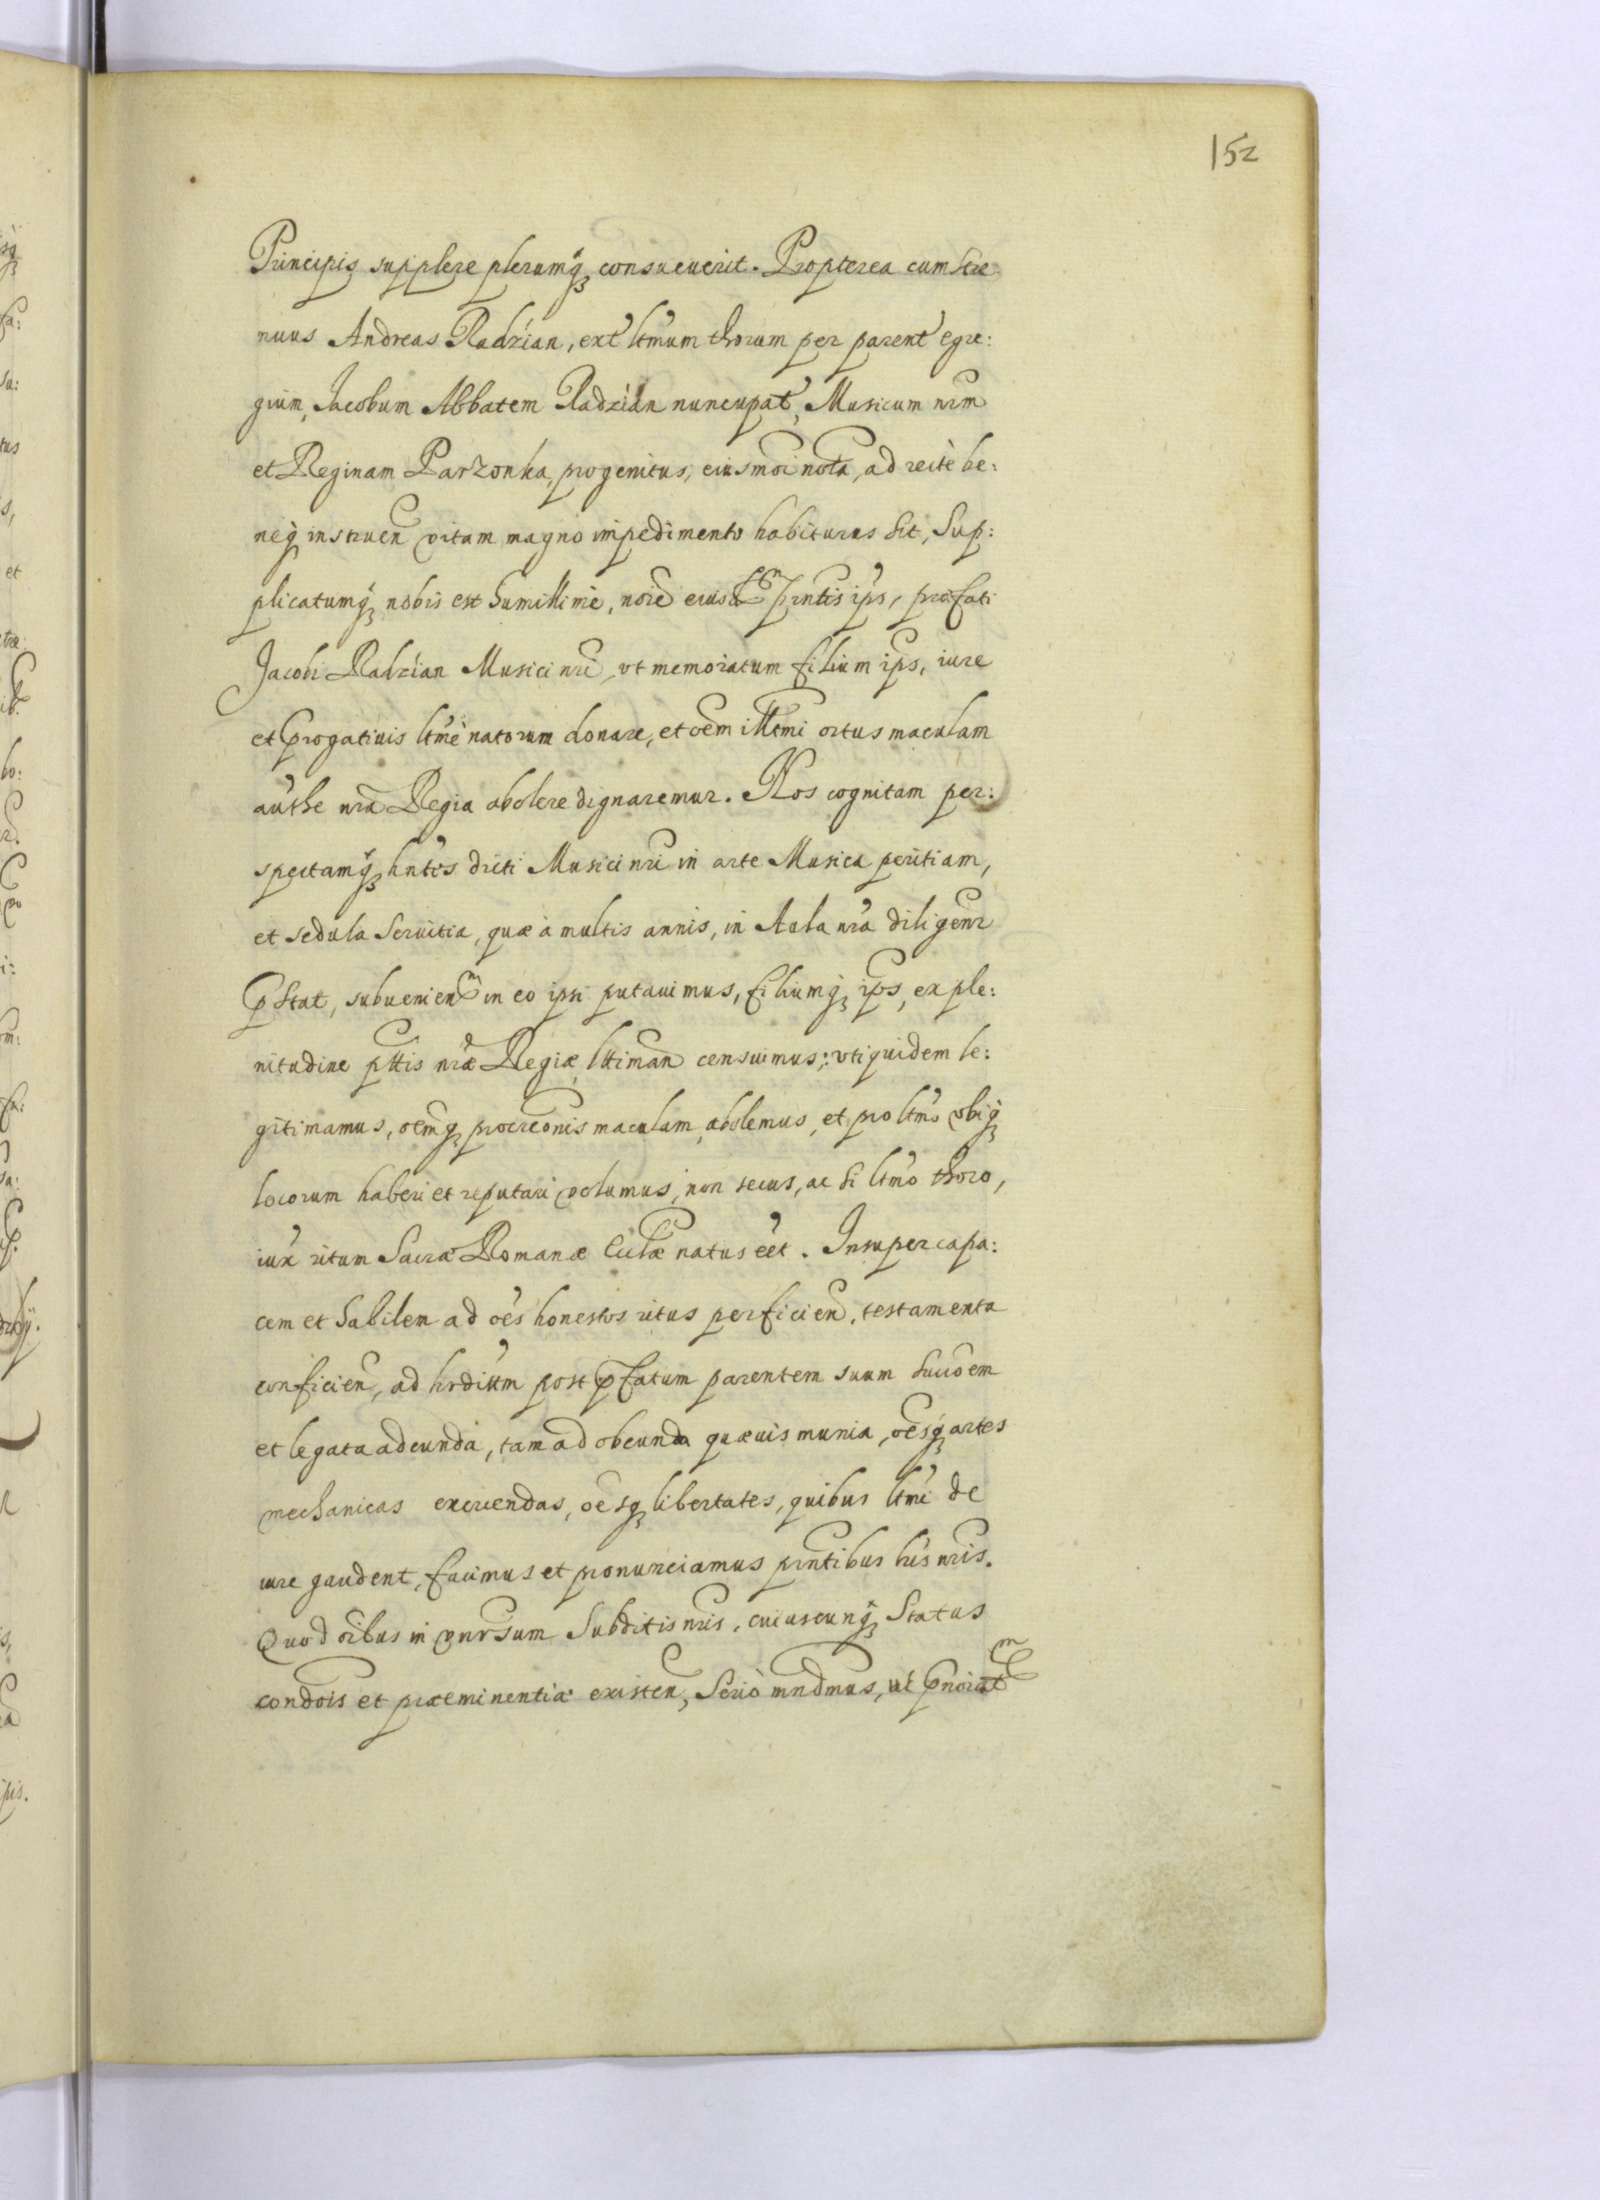 152
Principis supplere plerumq₃ consueuerit. Propterea cum stre
nuus Andreas Radzian, ext̃ ltmum thorum per parent̃ egre:
gium, Jacobum Abbatem Radzian nuncupat̃, Musicum nrm̃
et Reginam Parzonka, progenitus, eiusmoi nota, ad recte be:
neq₃ instruen̄ vitam magno impedimento habiturus sit, Sup:
plicatumq₃ nobis est humillime, noie eius pntis ips, præfati
Jacobi Radzian Musici nri, vt memoratum filium ips, iure
et progatiuis ltme natorum donare, et oem illtmi ortus maculam
authe nra Regia abolere dignaremur. Nos cognitam per:
spectamq₃ hntes dicti Musici nri in arte Musica peritiam,
et sedula seruitia, quæ à multis annis, in Aula nra diligenr
pstat, subuenien̄ in eo ipsi putauimus, filiumq₃ ips, ex ple:
nitudine pttis nræ Regiæ lttiman̄ censuimus; vti quidem le:
gitimamus, oemq₃ procreonis maculam abolemus, et pro ltmo vbiq₃
locorum haberi et reputari volumus, non secus, ac si ltmo thoro,
iux̃ ritum Sacræ Romanæ Ecclæ natus eet. Insuper capa:
cem et habilem ad oes honestos ritus perficien̄, testamenta
conficien̄, ad hrdium post pfatum parentem suum succoem
et legata adeunda, tam ad obeunda quæuis munia, oesq₃ artes
mechanicas exercendas, oesq₃ libertates, quibus ltmi de
iure gaudent, facimus et pronunciamus pntibus lris nris.
Quod oibus in vnrsum Subditis nris, cuiuscunq₃ Status
condois et præeminentiæ existen̄, serio mndmus, ut pnoiat̃